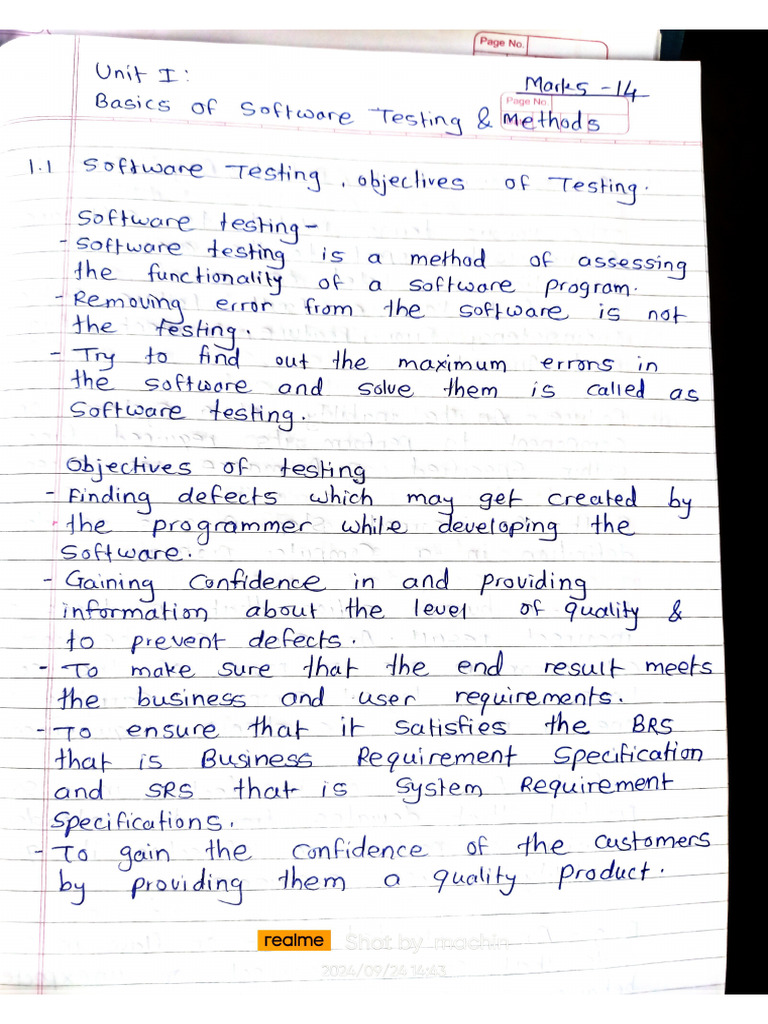 Page No.
Unit I:
Marks - 14
Page No.
Basics of Software Testing & Methods
1.1 Software Testing, objectives of Testing.
Software testing -
- Software testing is a method of assessing
the functionality of a software program.
- Removing error from the software is not
the testing.
- Try to find out the maximum errors in
the software and solve them is called as
Software testing.
Objectives of testing
- Finding defects which may get created by
the programmer while developing the
Software.
- Gaining Confidence in and providing
information about the level of quality &
to prevent defects.
- To make sure that the end result meets
the business and user requirements.
- To ensure that it satisfies the BRS
that is Business Requirement Specification
and SRS that is System Requirement
Specifications.
- To gain the confidence of the customers
by providing them a quality product.
realme Shot by machin
2024/09/24 14:43